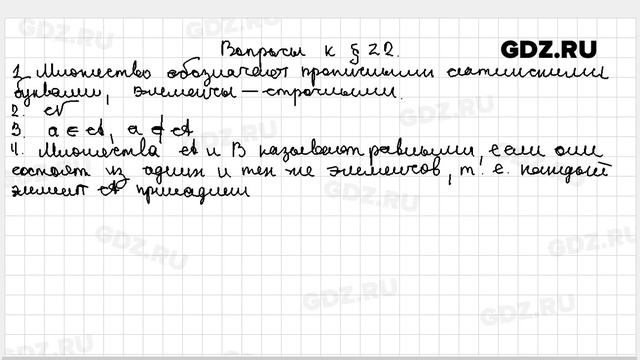 Вопросы к § 22.
GDZ.RU
1. Множество обозначают прописными латинскими
буквами, элементы — строчными.
2. N
3. a ∈ A, a ∉ A
4. Множества A и B называют равными, если они
состоят из одних и тех же элементов, т. е. каждый
элемент A принадлеж
GDZ.RU
GDZ.RU
GDZ.RU
GDZ.RU
GDZ.RU
GDZ.RU
GDZ.RU
GDZ.RU
GDZ.RU